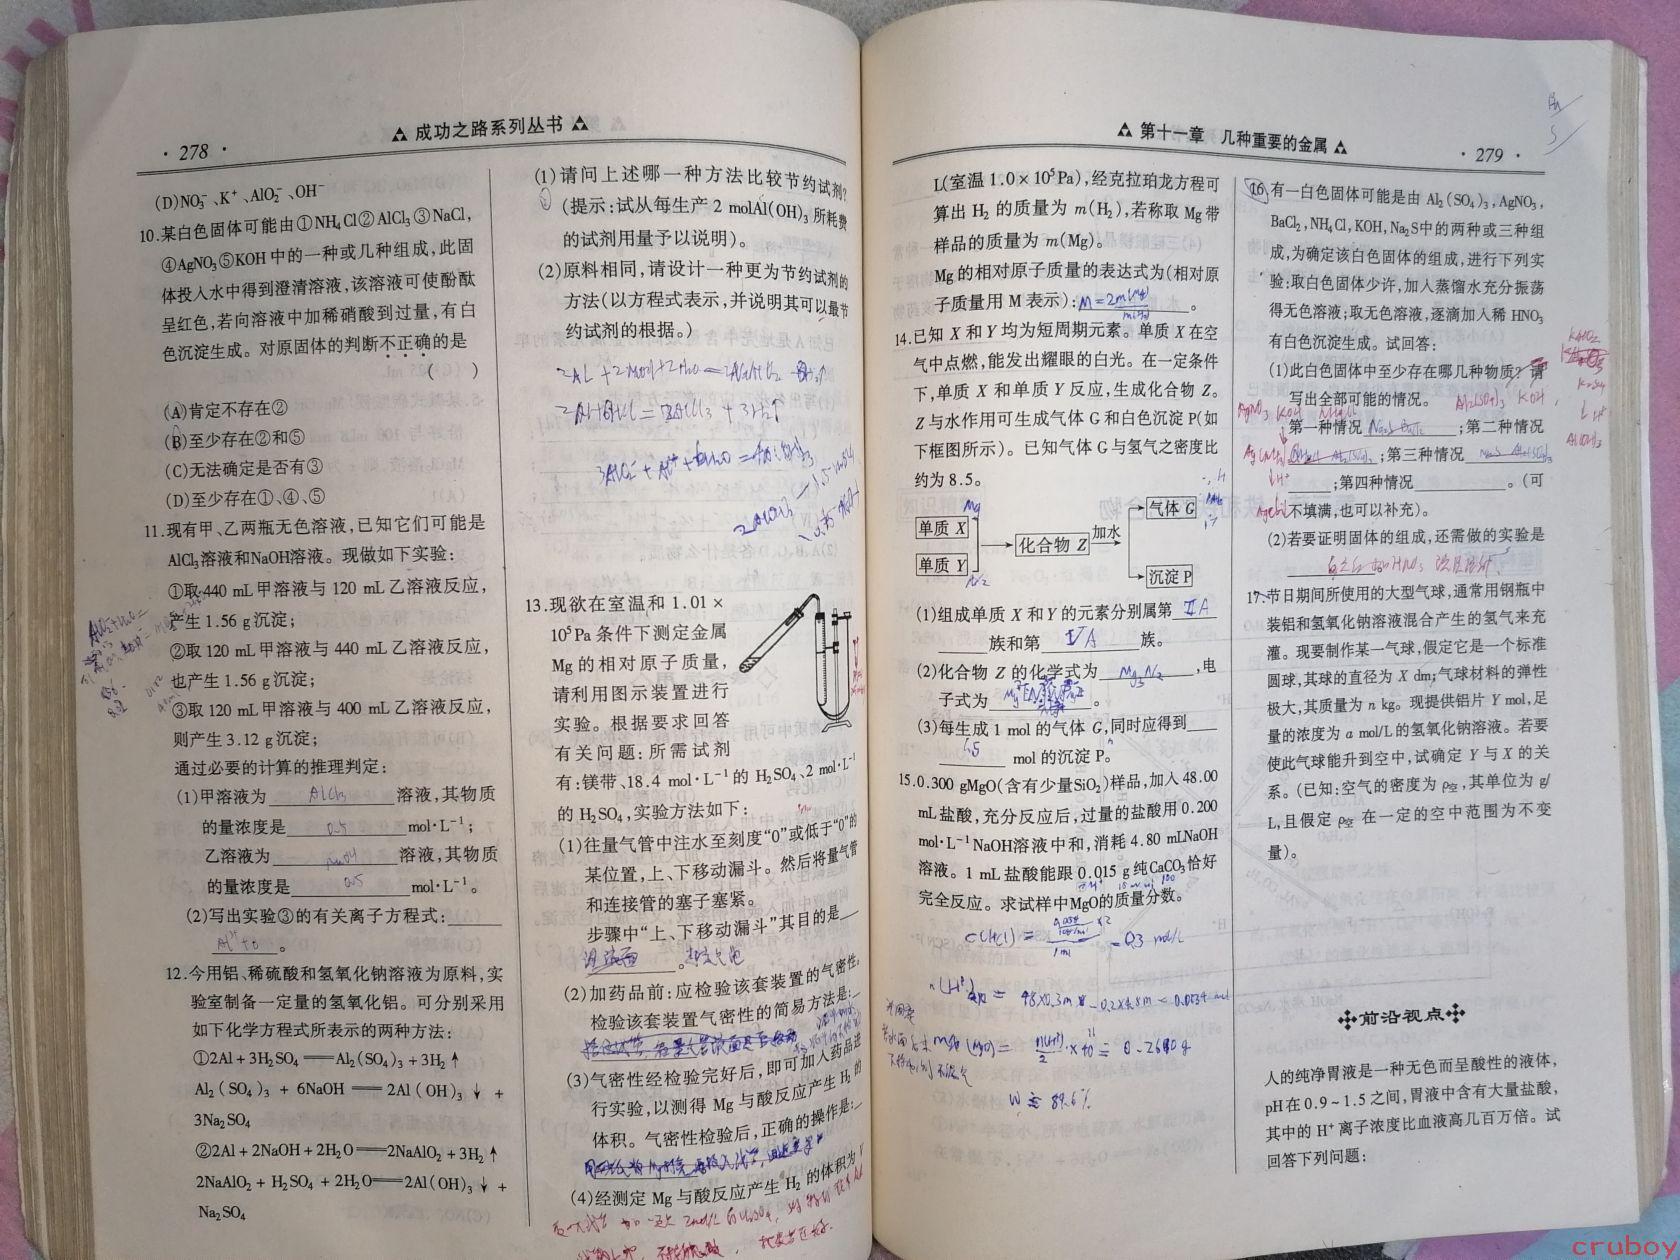 · 278 ·
成功之路系列丛书
(D)NO₃⁻、K⁺、AlO₂⁻、OH⁻
10.某白色固体可能由①NH₄Cl②AlCl₃③NaCl,
④AgNO₃⑤KOH中的一种或几种组成,此固
体投入水中得到澄清溶液,该溶液可使酚酞
呈红色,若向溶液中加稀硝酸到过量,有白
色沉淀生成。对原固体的判断不正确的是
( )
(A)肯定不存在②
(B)至少存在②和⑤
(C)无法确定是否有③
(D)至少存在①、④、⑤
11.现有甲、乙两瓶无色溶液,已知它们可能是
AlCl₃溶液和NaOH溶液。现做如下实验:
①取440 mL甲溶液与120 mL乙溶液反应,
产生1.56 g沉淀;
②取120 mL甲溶液与440 mL乙溶液反应,
也产生1.56 g沉淀;
③取120 mL甲溶液与400 mL乙溶液反应,
则产生3.12 g沉淀;
通过必要的计算的推理判定:
(1)甲溶液为 AlCl₃ 溶液,其物质
的量浓度是 0.5 mol·L⁻¹;
乙溶液为 NaOH 溶液,其物质
的量浓度是 0.5 mol·L⁻¹。
(2)写出实验③的有关离子方程式:
。
12.今用铝、稀硫酸和氢氧化钠溶液为原料,实
验室制备一定量的氢氧化铝。可分别采用
如下化学方程式所表示的两种方法:
①2Al+3H₂SO₄══Al₂(SO₄)₃+3H₂↑
Al₂(SO₄)₃ + 6NaOH══2Al(OH)₃↓ +
3Na₂SO₄
②2Al+2NaOH+2H₂O══2NaAlO₂+3H₂↑
2NaAlO₂+H₂SO₄+2H₂O══2Al(OH)₃↓+
Na₂SO₄
(1)请问上述哪一种方法比较节约试剂?
(提示:试从每生产2 molAl(OH)₃所耗费
的试剂用量予以说明)。
(2)原料相同,请设计一种更为节约试剂的
方法(以方程式表示,并说明其可以最节
约试剂的根据。)
13.现欲在室温和1.01×
10⁵Pa条件下测定金属
Mg的相对原子质量,
请利用图示装置进行
实验。根据要求回答
有关问题:所需试剂
有:镁带、18.4 mol·L⁻¹的H₂SO₄、2 mol·L⁻¹
的H₂SO₄,实验方法如下:
(1)往量气管中注水至刻度“0”或低于“0”的
某位置,上、下移动漏斗。然后将量气管
和连接管的塞子塞紧。
步骤中“上、下移动漏斗”其目的是
。
(2)加药品前:应检验该套装置的气密性,
检验该套装置气密性的简易方法是:
(3)气密性经检验完好后,即可加入药品进
行实验,以测得Mg与酸反应产生H₂的
体积。气密性检验后,正确的操作是:
(4)经测定Mg与酸反应产生H₂的体积为V
第十一章 几种重要的金属
· 279 ·
L(室温1.0×10⁵Pa),经克拉珀龙方程可
算出H₂的质量为m(H₂),若称取Mg带
样品的质量为m(Mg)。
Mg的相对原子质量的表达式为(相对原
子质量用M表示): 。
14.已知X和Y均为短周期元素。单质X在空
气中点燃,能发出耀眼的白光。在一定条件
下,单质X和单质Y反应,生成化合物Z。
Z与水作用可生成气体G和白色沉淀P(如
下框图所示)。已知气体G与氢气之密度比
约为8.5。
单质 X
单质 Y
化合物 Z
加水
气体 G
沉淀 P
Mg
(1)组成单质X和Y的元素分别属第 ⅡA
族和第 ⅤA 族。
(2)化合物Z的化学式为 Mg₃N₂ ,电
子式为 。
(3)每生成1 mol的气体G,同时应得到
1.5 mol的沉淀P。
15.0.300 gMgO(含有少量SiO₂)样品,加入48.00
mL盐酸,充分反应后,过量的盐酸用0.200
mol·L⁻¹NaOH溶液中和,消耗4.80 mLNaOH
溶液。1 mL盐酸能跟0.015 g纯CaCO₃恰好
完全反应。求试样中MgO的质量分数。
W = 89.6%
16.有一白色固体可能是由Al₂(SO₄)₃,AgNO₃,
BaCl₂,NH₄Cl,KOH,Na₂S中的两种或三种组
成,为确定该白色固体的组成,进行下列实
验:取白色固体少许,加入蒸馏水充分振荡
得无色溶液;取无色溶液,逐滴加入稀HNO₃
有白色沉淀生成。试回答:
(1)此白色固体中至少存在哪几种物质?请
写出全部可能的情况。
第一种情况 ;第二种情况
;第三种情况
;第四种情况 。(可
不填满,也可以补充)。
(2)若要证明固体的组成,还需做的实验是
17.节日期间所使用的大型气球,通常用钢瓶中
装铝和氢氧化钠溶液混合产生的氢气来充
灌。现要制作某一气球,假定它是一个标准
圆球,其球的直径为X dm;气球材料的弹性
极大,其质量为n kg。现提供铝片Y mol,足
量的浓度为a mol/L的氢氧化钠溶液。若要
使此气球能升到空中,试确定Y与X的关
系。(已知:空气的密度为ρ空,其单位为g/
L,且假定ρ空在一定的空中范围为不变
量)。
前沿视点
人的纯净胃液是一种无色而呈酸性的液体,
pH在0.9~1.5之间,胃液中含有大量盐酸,
其中的H⁺离子浓度比血液高几百万倍。试
回答下列问题:
cruboy